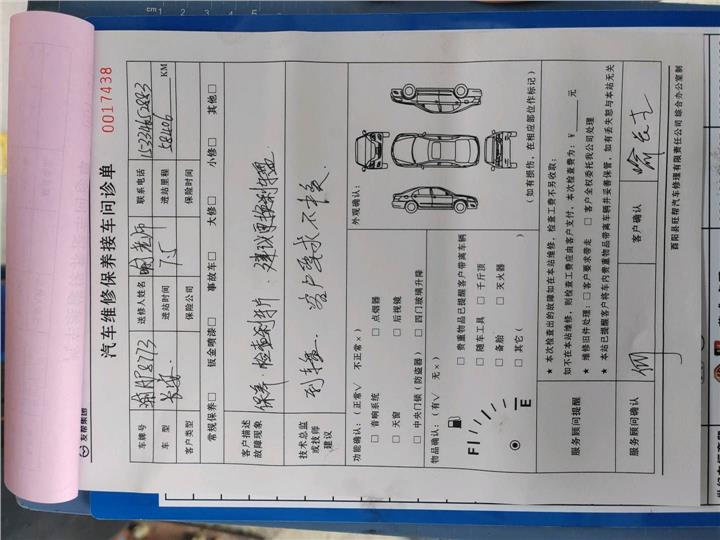 友帮集团
汽车维修保养接车问诊单
0017438
车牌号 送修人姓名 联系电话
车型 长安 进站时间 7.5 进站里程 58406 KM
客户类型 保险公司 保险时间
常规保养□ 钣金喷漆□ 事故车□ 大修□ 小修□ 其他□
客户描述
故障现象
保养·检查刹片·建议更换刹车盘
技术总监
或技师
建议
客户要求不换
功能确认：(正常√ 不正常×)
□ 音响系统 □ 点烟器
□ 天窗 □ 后视镜
□ 中央门锁（防盗器） □ 四门玻璃升降
外观确认：
(如有损伤，在相应部位作标记)
物品确认：(有√ 无×)
F E
□ 贵重物品已提醒客户带离车辆
□ 随车工具 □ 千斤顶
□ 备胎 □ 灭火器
□ 其它（
服务顾问提醒
★ 本次检查出的故障如在本站维修，检查工费不另收取；
如不在本站维修，则检查工费应由客户支付，本次检查费为：¥ 元
★ 维修旧件处理：□ 客户要求带走 □ 客户全权委托我公司处理
★ 本站已提醒客户将车内贵重物品带离车辆并妥善保管，如有丢失恕与本站无关
服务顾问确认 客户确认
酉阳县旺帮汽车修理有限责任公司综合办公室制